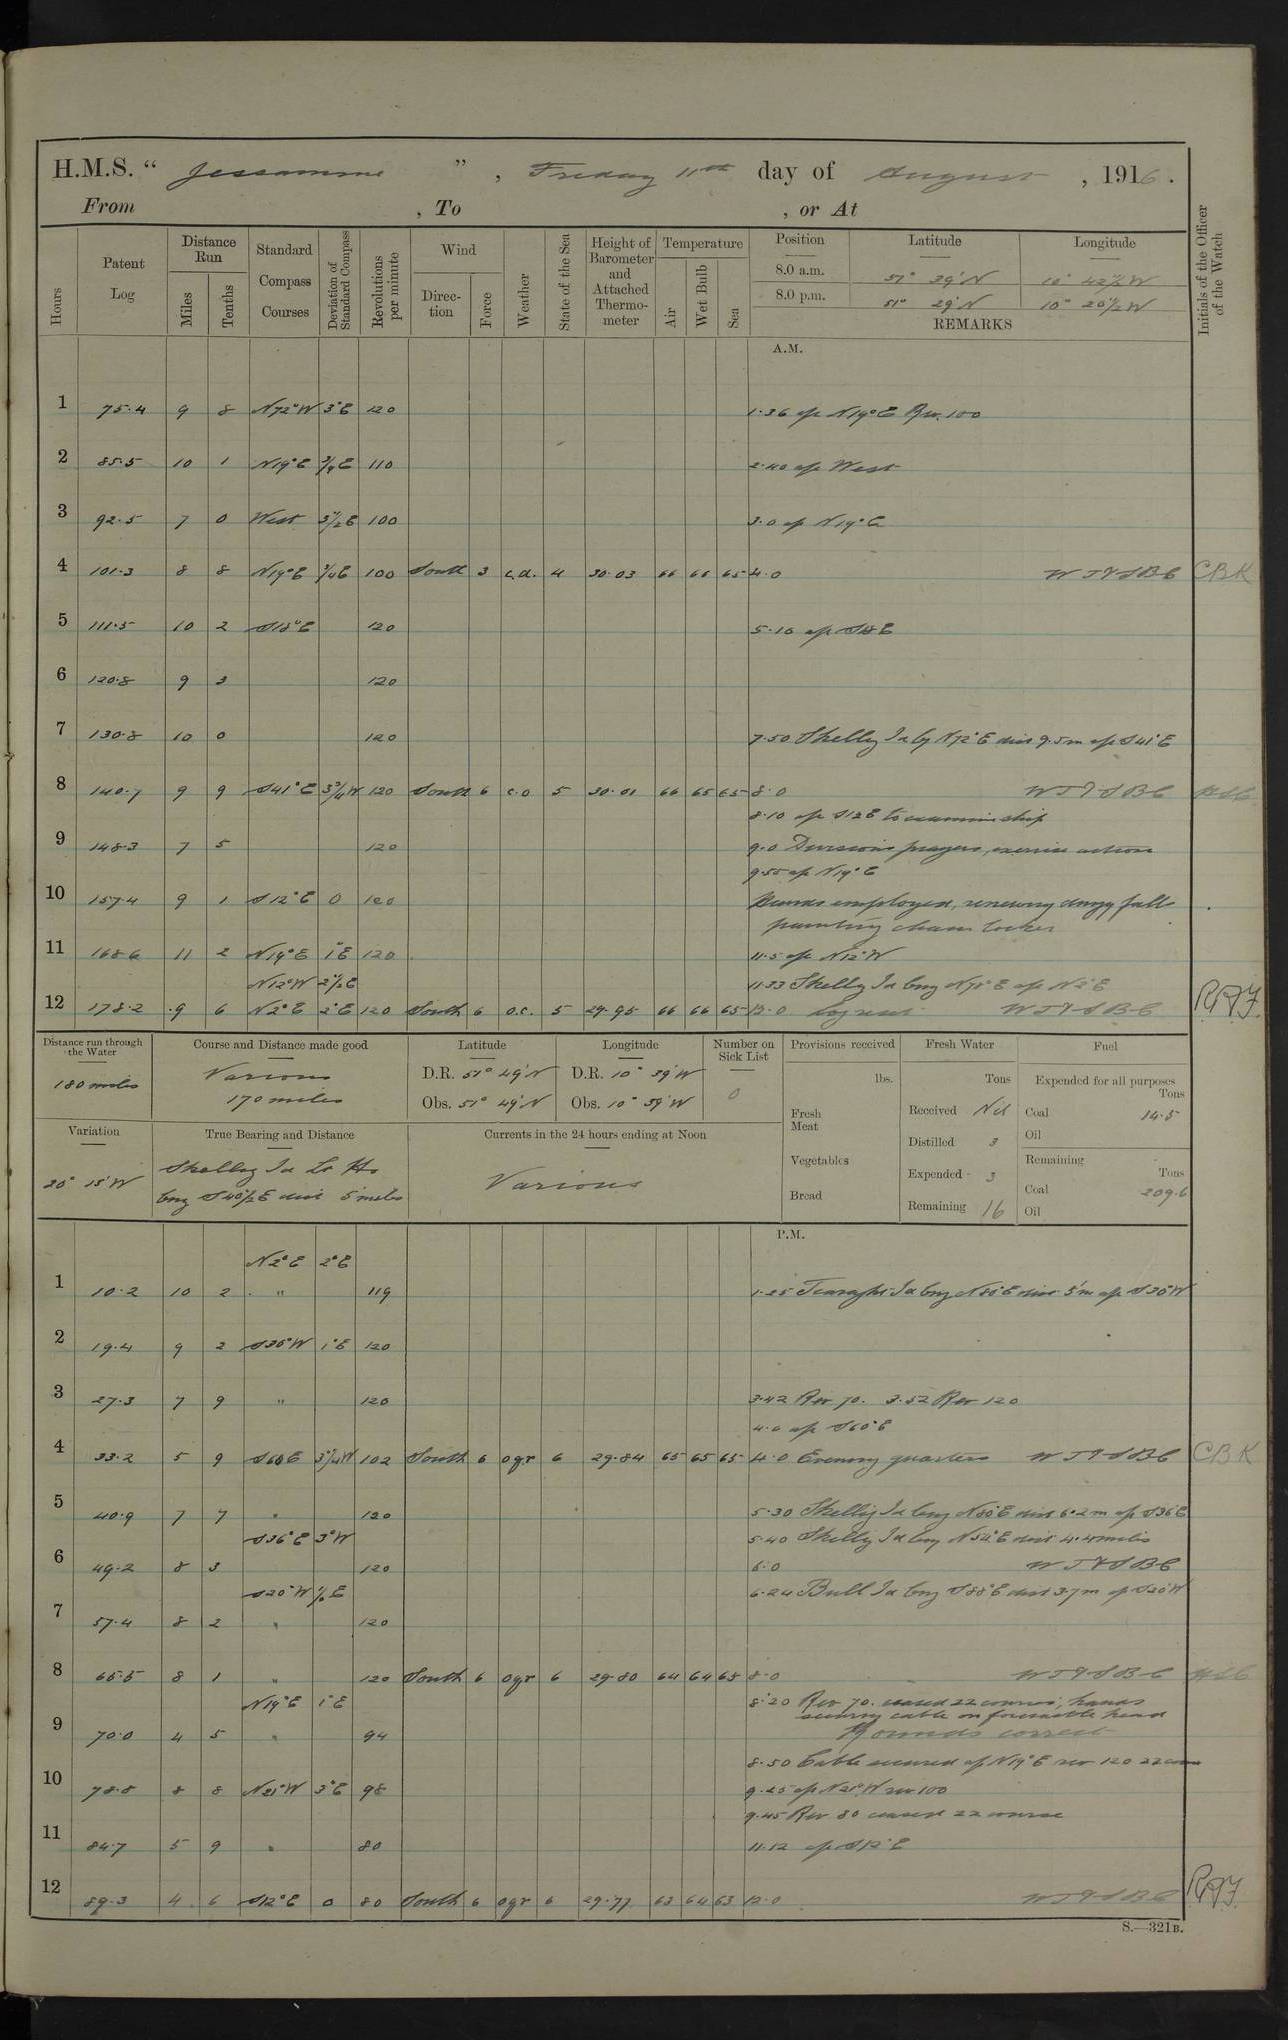 H.M.S. “ Jessamine ” , Friday 11th day of August , 1916 .
From , To , or At
Hours
Patent Log
Distance Run
Miles
Tenths
Standard Compass Courses
Deviation of Standard Compass
Revolutions per minute
Wind
Direction
Force
Weather
State of the Sea
Height of Barometer and Attached Thermometer
Temperature
Air
Wet Bulb
Sea
Position Latitude Longitude
8.0 a.m. 51° 39' N 10° 42½' W
8.0 p.m. 51° 29' N 10° 26½' W
REMARKS
Initials of the Officer of the Watch
A.M.
1 75.4 9 8 N72°W 3°E 120 1.36 a/c N19°E Rev. 100
2 85.5 10 1 N19°E ¾E 110 2.40 a/c West
3 92.5 7 0 West 3½E 100 3.0 a/c N19°E
4 101.3 8 8 N19°E ¾E 100 South 3 c.d. 4 30.03 66 66 65 4.0 CBK
5 111.5 10 2 S18°E 120 5.10 a/c S18E
6 120.8 9 3 120
7 130.8 10 0 120 7.50 Skellig Id bg N72°E dist 9.5m a/c S41°E
8 140.7 9 9 S41°E 3¾W 120 South 6 c.o 5 30.01 66 65 65 8.0
8.10 a/c S12E to examine ship
9 148.3 7 5 120 9.0 Divisions prayers, exercise action
9.55 a/c N19°E
10 157.4 9 1 S12°E 0 120 Hands employed, renewing dingy falls
painting chain locker
11 168.6 11 2 N19°E 1°E 120 11.5 a/c N12°W
N12°W 2½E 11.33 Skellig Id brg N75°E a/c N2°E
12 178.2 9 6 N2°E 2°E 120 South 6 o.c. 5 29.95 66 66 65 12.0 Log reset RAF.
Distance run through the Water
180 miles
Course and Distance made good
Various
170 miles
Latitude
D.R. 51° 49' N
Obs. 51° 49' N
Longitude
D.R. 10° 39' W
Obs. 10° 39' W
Number on Sick List
0
Variation
20° 15' W
True Bearing and Distance
Skellig Id Lt Ho
brg S40½E dist 5 miles
Currents in the 24 hours ending at Noon
Various
Provisions received
lbs.
Fresh Meat
Vegetables
Bread
Fresh Water
Tons
Received Nil
Distilled 3
Expended 3
Remaining 16
Fuel
Expended for all purposes
Tons
Coal 14.5
Oil
Remaining
Tons
Coal 209.6
Oil
P.M.
N2°E 2°E
1 10.2 10 2 " 119 1.25 Tearaght Id brg N80°E dist 5'm a/c S35°W
2 19.4 9 2 S35°W 1°E 120
3 27.3 7 9 " 120 3.42 Rev 70. 3.52 Rev 120
4.0 a/c S60°E
4 33.2 5 9 S60E 3¾W 102 South 6 ogr 6 29.84 65 65 65 4.0 Evening quarters CBK
5 40.9 7 7 " 120 5.30 Skellig Id brg N80°E dist 6.2m a/c S36E
S36°E 3°W 5.40 Skellig Id brg N54°E dist 4.4 miles
6 49.2 8 3 120 6.0
S20°W ½E 6.24 Bull Id brg S88°E dist 3.7m a/c S20°W
7 57.4 8 2 " 120
8 65.5 8 1 " 120 South 6 ogr 6 29.80 64 64 65 8.0
N19°E 1°E 8.20 Rev 70. ceased 22 course, hands
securing cable on forecastle head
9 70.0 4 5 " 94 Rounds correct
8.50 Cable secured a/c N19°E rev 120
10 78.8 8 8 N21°W 3°E 98 9.25 a/c N21°W rev 100
9.45 Rev 80 ceased 22 course
11 84.7 5 9 " 80 11.12 a/c S12°E
12 89.3 4 6 S12°E 0 80 South 6 ogr 6 29.77 63 64 63 12.0 RAF.
S.—321B.